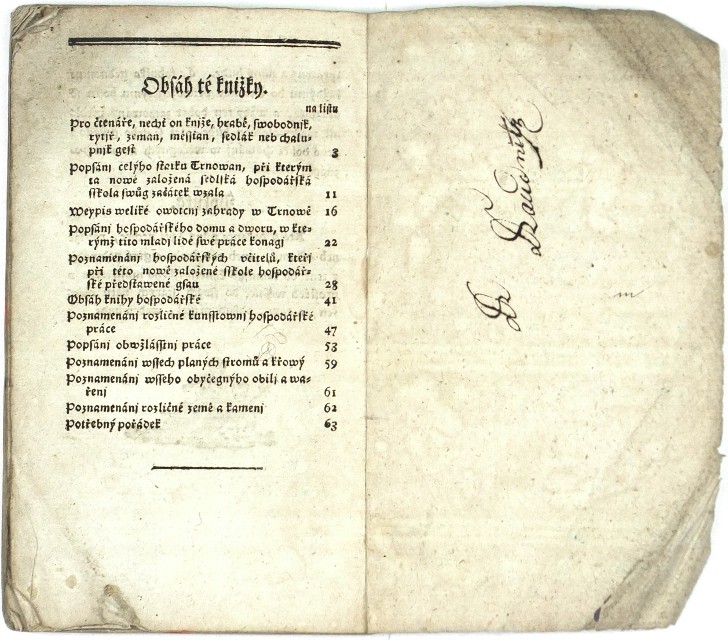 Obsáh té knižky.
na listu
Pro čtenáře, nechť on kniže, hrabě, swobodnik,
rytjř, zeman, měsstan, sedlák neb chalu-
pnjk gest 3
Popsánj celýho statku Trnowan, při kterým
ta nowě založená sedlská hospodářská
sskola swůg začátek wzala 11
Weypis weliké owotcní zahrady w Trnowě 16
Popsánj hospodářského domu a dworu, w kte-
rýmž tito mladj lidé swé práce konagj 22
Poznamenánj hospodářských včitelů, kteřj
při této nowě založené sskole hospodář-
ské představené gsau 28
Obsáh knihy hospodářské 41
Poznamenánj rozličné kunsstownj hospodářské
práce 47
Popsánj obwzlásstnj práce 53
Poznamenánj wssech planých stromů a křowý 59
Poznamenánj wsseho obyčegnýho obilj a wa-
řenj 61
Poznamenánj rozličné země a kamenj 62
Potřebný pořádek 63